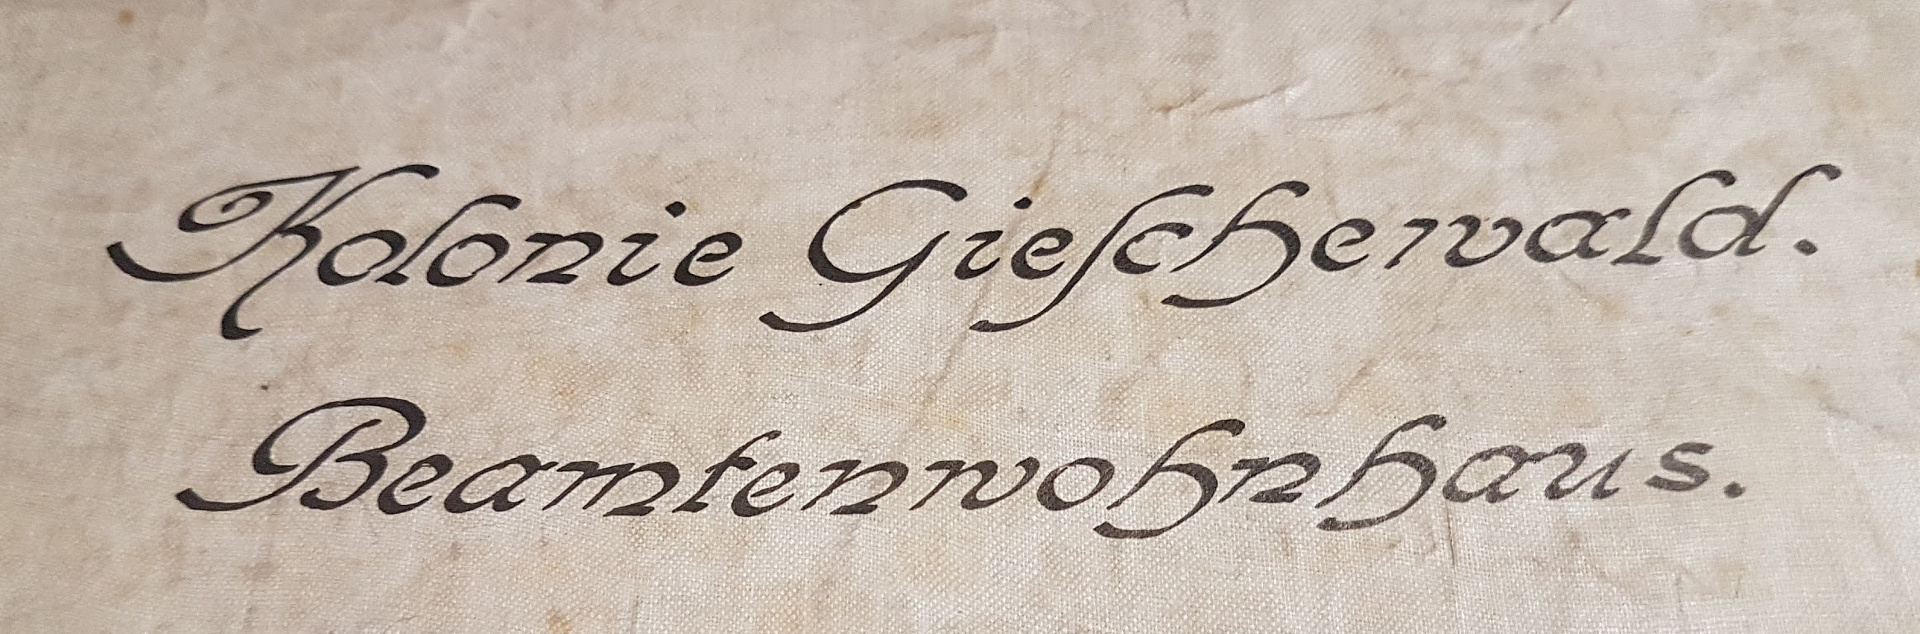 Kolonie Gieſchewald.
Beamtenwohnhaus.